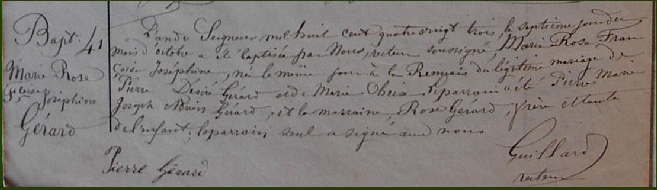 Bapt: 41
Marie Rose
F.coise Joséphine
Gérard
L'an de Seigneur mil huit cent quatre vingt trois, le septième jour du
mois d'octobre a été baptisée par Nous, recteur soussigné Marie Rose Fran
çoise Joséphine, née le même jour à la du légitime mariage de
Pierre Désiré Gérard et de Marie le parrain a été Pierre Marie
Joseph Gérard, et la marraine, Rose Gérard, frère et tante
de l'enfant; le parrain seul a signé avec nous.
Pierre Gérard
Guillard
recteur